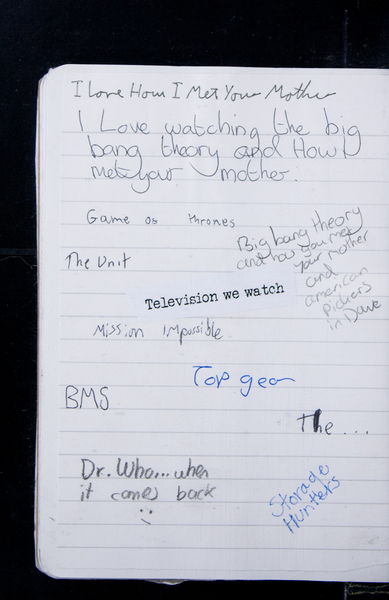 I love How I Met Your Mother
I Love watching the big
bang theory and How I
met your mother.
Game of thrones
Big bang theory
and how you met
your mother
and
american
Pickers
in Dave
The Unit
Television we watch
Mission Impossible
Top gear
BMS
The...
Dr. Who... when
it comes back
:)
Storage
Hunters